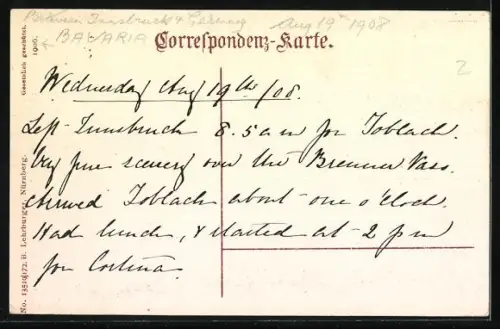 Between Innsbruck & Toblach Aug 19th 1908
BAVARIA
Correspondenz-Karte.
2
Gesetzlich geschützt.
1906.
Wednesday Aug 19th/08.
Left Innsbruck 8.5 am for Toblach.
Very fine scenery over the Brenner Pass.
arrived Toblach about one o'clock.
Had lunch, & started at 2 pm
for Cortina.
No. 13510/172. B. Lehrburger, Nürnberg.